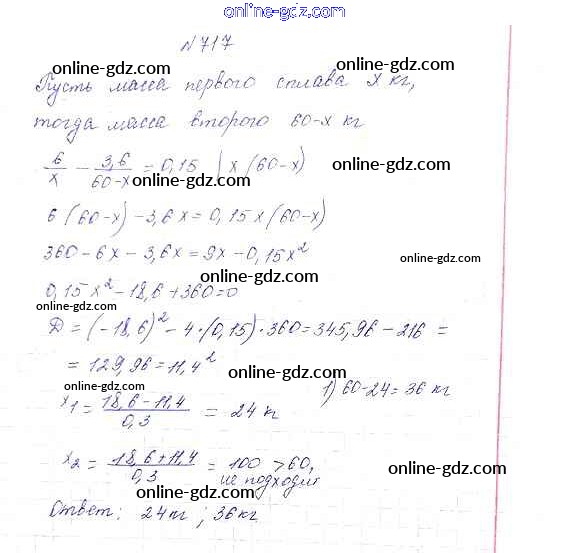 online-gdz.com
№717
online-gdz.com online-gdz.com
Пусть масса первого сплава x кг,
online-gdz.com
тогда масса второго 60-x кг
6/x - 3,6/60-x = 0,15 | x(60-x)
online-gdz.com online-gdz.com
6(60-x)-3,6x=0,15x(60-x)
online-gdz.com
360-6x-3,6x=9x-0,15x²
online-gdz.com
online-gdz.com
0,15x²-18,6+360=0
online-gdz.com
Д=(-18,6)²-4·(0,15)·360=345,96-216=
online-gdz.com
=129,96=11,4²
online-gdz.com
x₁=18,6-11,4/0,3 = 24 кг
1) 60-24=36 кг
online-gdz.com
online-gdz.com
x₂=18,6+11,4/0,3 = 100 >60,
не подходит
online-gdz.com
online-gdz.com
Ответ: 24кг; 36кг
online-gdz.com